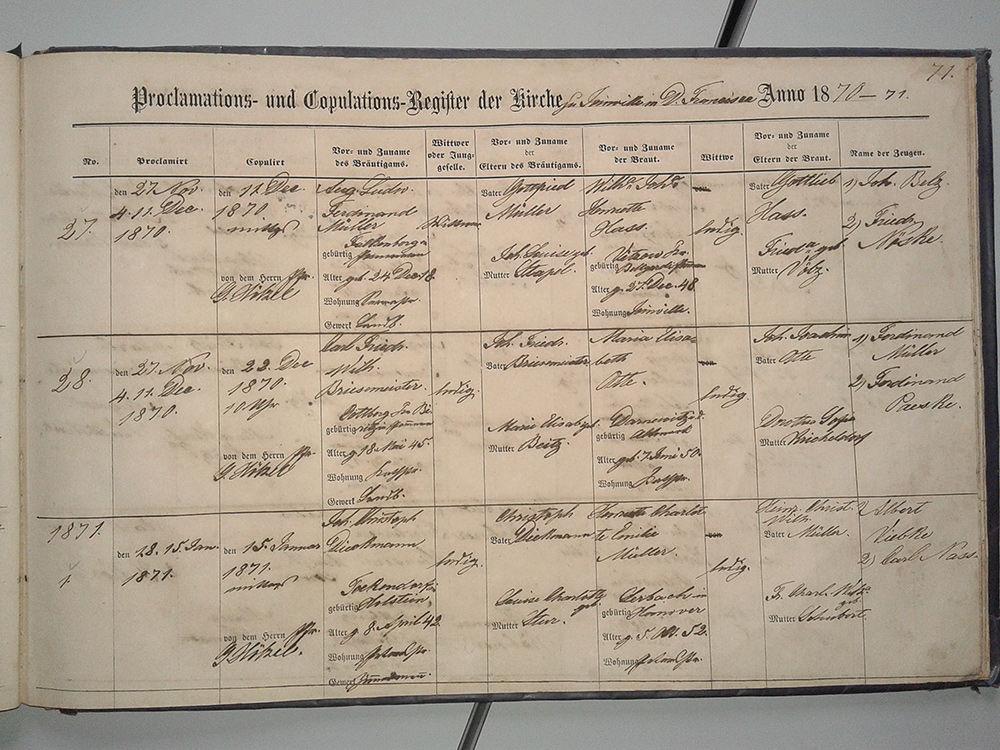 71.
Proclamations- und Copulations-Register der Kirche zu Joinville in D. Francisca Anno 1870–71.
No.
Proclamirt
Copulirt
Vor- und Zuname
des Bräutigams.
Wittwer
oder Jung-
geselle.
Vor- und Zuname
der
Eltern des Bräutigams.
Vor- und Zuname
der Braut.
Wittwe
Vor- und Zuname
der
Eltern der Braut.
Name der Zeugen.
27.
den 27. Nov.
4. 11. Dec.
1870.
den 12. Dec
1870.
mittags
von dem Herrn Pfr.
G. Hölzel
Aug. Ludw.
Ferdinand
Müller
gebürtig
Alter geb. 24 Dec. 18
Wohnung
Gewerk Landb.
Wittwer
Vater Gottfried
Müller
Joh. Luise geb.
Mutter
Wilh. Joh.
Henriette
Hass.
gebürtig
Alter g. 27. Dec. 48
Wohnung Joinville.
ledig
Vater Gottlieb
Hass.
geb
Mutter Völz.
1) Joh. Belz.
2) Friedr.
Nöske.
28.
den 27. Nov.
4. 11. Dec.
1870.
den 22. Dec
1870.
10 Uhr
von dem Herrn Pfr.
G. Hölzel
Carl Friedr.
Wilh.
Briesmeister.
gebürtig
Alter g 18 Mai 45.
Wohnung
Gewerk Landb.
ledig.
Joh. Friedr.
Vater Briesmeister
Marie Elisab. geb.
Mutter Beitz.
Maria Elisa-
beth
Otte.
gebürtig
Alter geb. 7. Juni 50.
Wohnung
ledig.
Joh. Joachim
Vater Otte
Dorothea Sophie
Mutter
1) Ferdinand
Müller
2) Ferdinand
Paeske.
1871.
1.
den 1. 8. 15. Jan.
1871.
den 15. Januar
1871.
mittags
von dem Herrn Pfr.
G. Hölzel.
Joh. Christoph
Dieckmann
gebürtig Holstein.
Alter g 8. April 42.
Wohnung
Gewerk
ledig.
Christoph
Vater Dieckmann
Luise Charlotte
geb.
Mutter
Henriette Charlot-
te Emilie
Müller
Lerbach in
gebürtig Hannover
Alter g. 5. Oct. 52.
Wohnung
ledig.
Heinr. Christ.
Wilh.
Vater Müller.
Charl.
Mutter Schubert.
1) Albert
Liebke
2) Carl Nass.